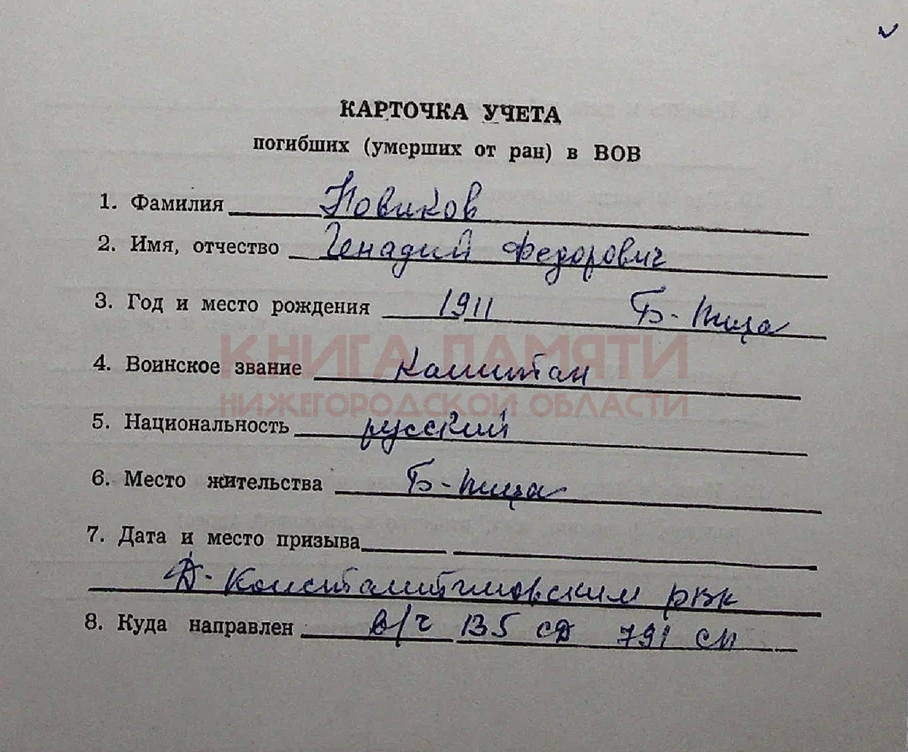 КАРТОЧКА УЧЕТА
погибших (умерших от ран) в ВОВ
1. Фамилия Новиков
2. Имя, отчество Генадий Федорович
3. Год и место рождения 1911 Б-Пица
КНИГА ПАМЯТИ
4. Воинское звание Капитан
НИЖЕГОРОДСКОЙ ОБЛАСТИ
5. Национальность русский
6. Место жительства Б-Пица
7. Дата и место призыва
Д-Константиновским рвк
8. Куда направлен в/ч 135 сд 791 сп